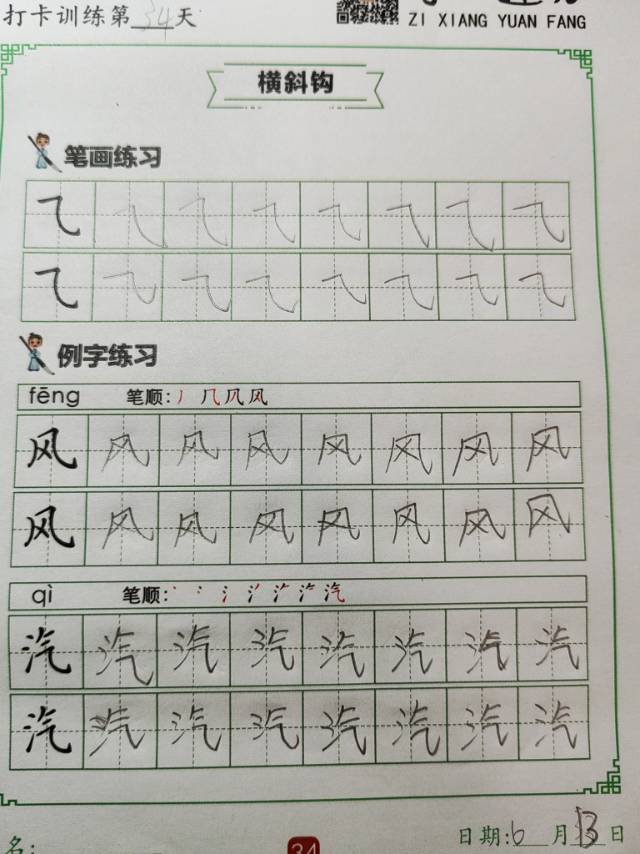 打卡训练第34天
ZI XIANG YUAN FANG
横斜钩
笔画练习
⺄ ⺄ ⺄ ⺄ ⺄ ⺄ ⺄ ⺄
⺄ ⺄ ⺄ ⺄ ⺄ ⺄ ⺄ ⺄
例字练习
fēng 笔顺: 丿 ⺇ 凤 风
风 风 风 风 风 风 风 风
风 风 风 风 风 风 风 风
qì 笔顺:
汽 汽 汽 汽 汽 汽 汽 汽
汽 汽 汽 汽 汽 汽 汽 汽
名:
34
日期:6月13日